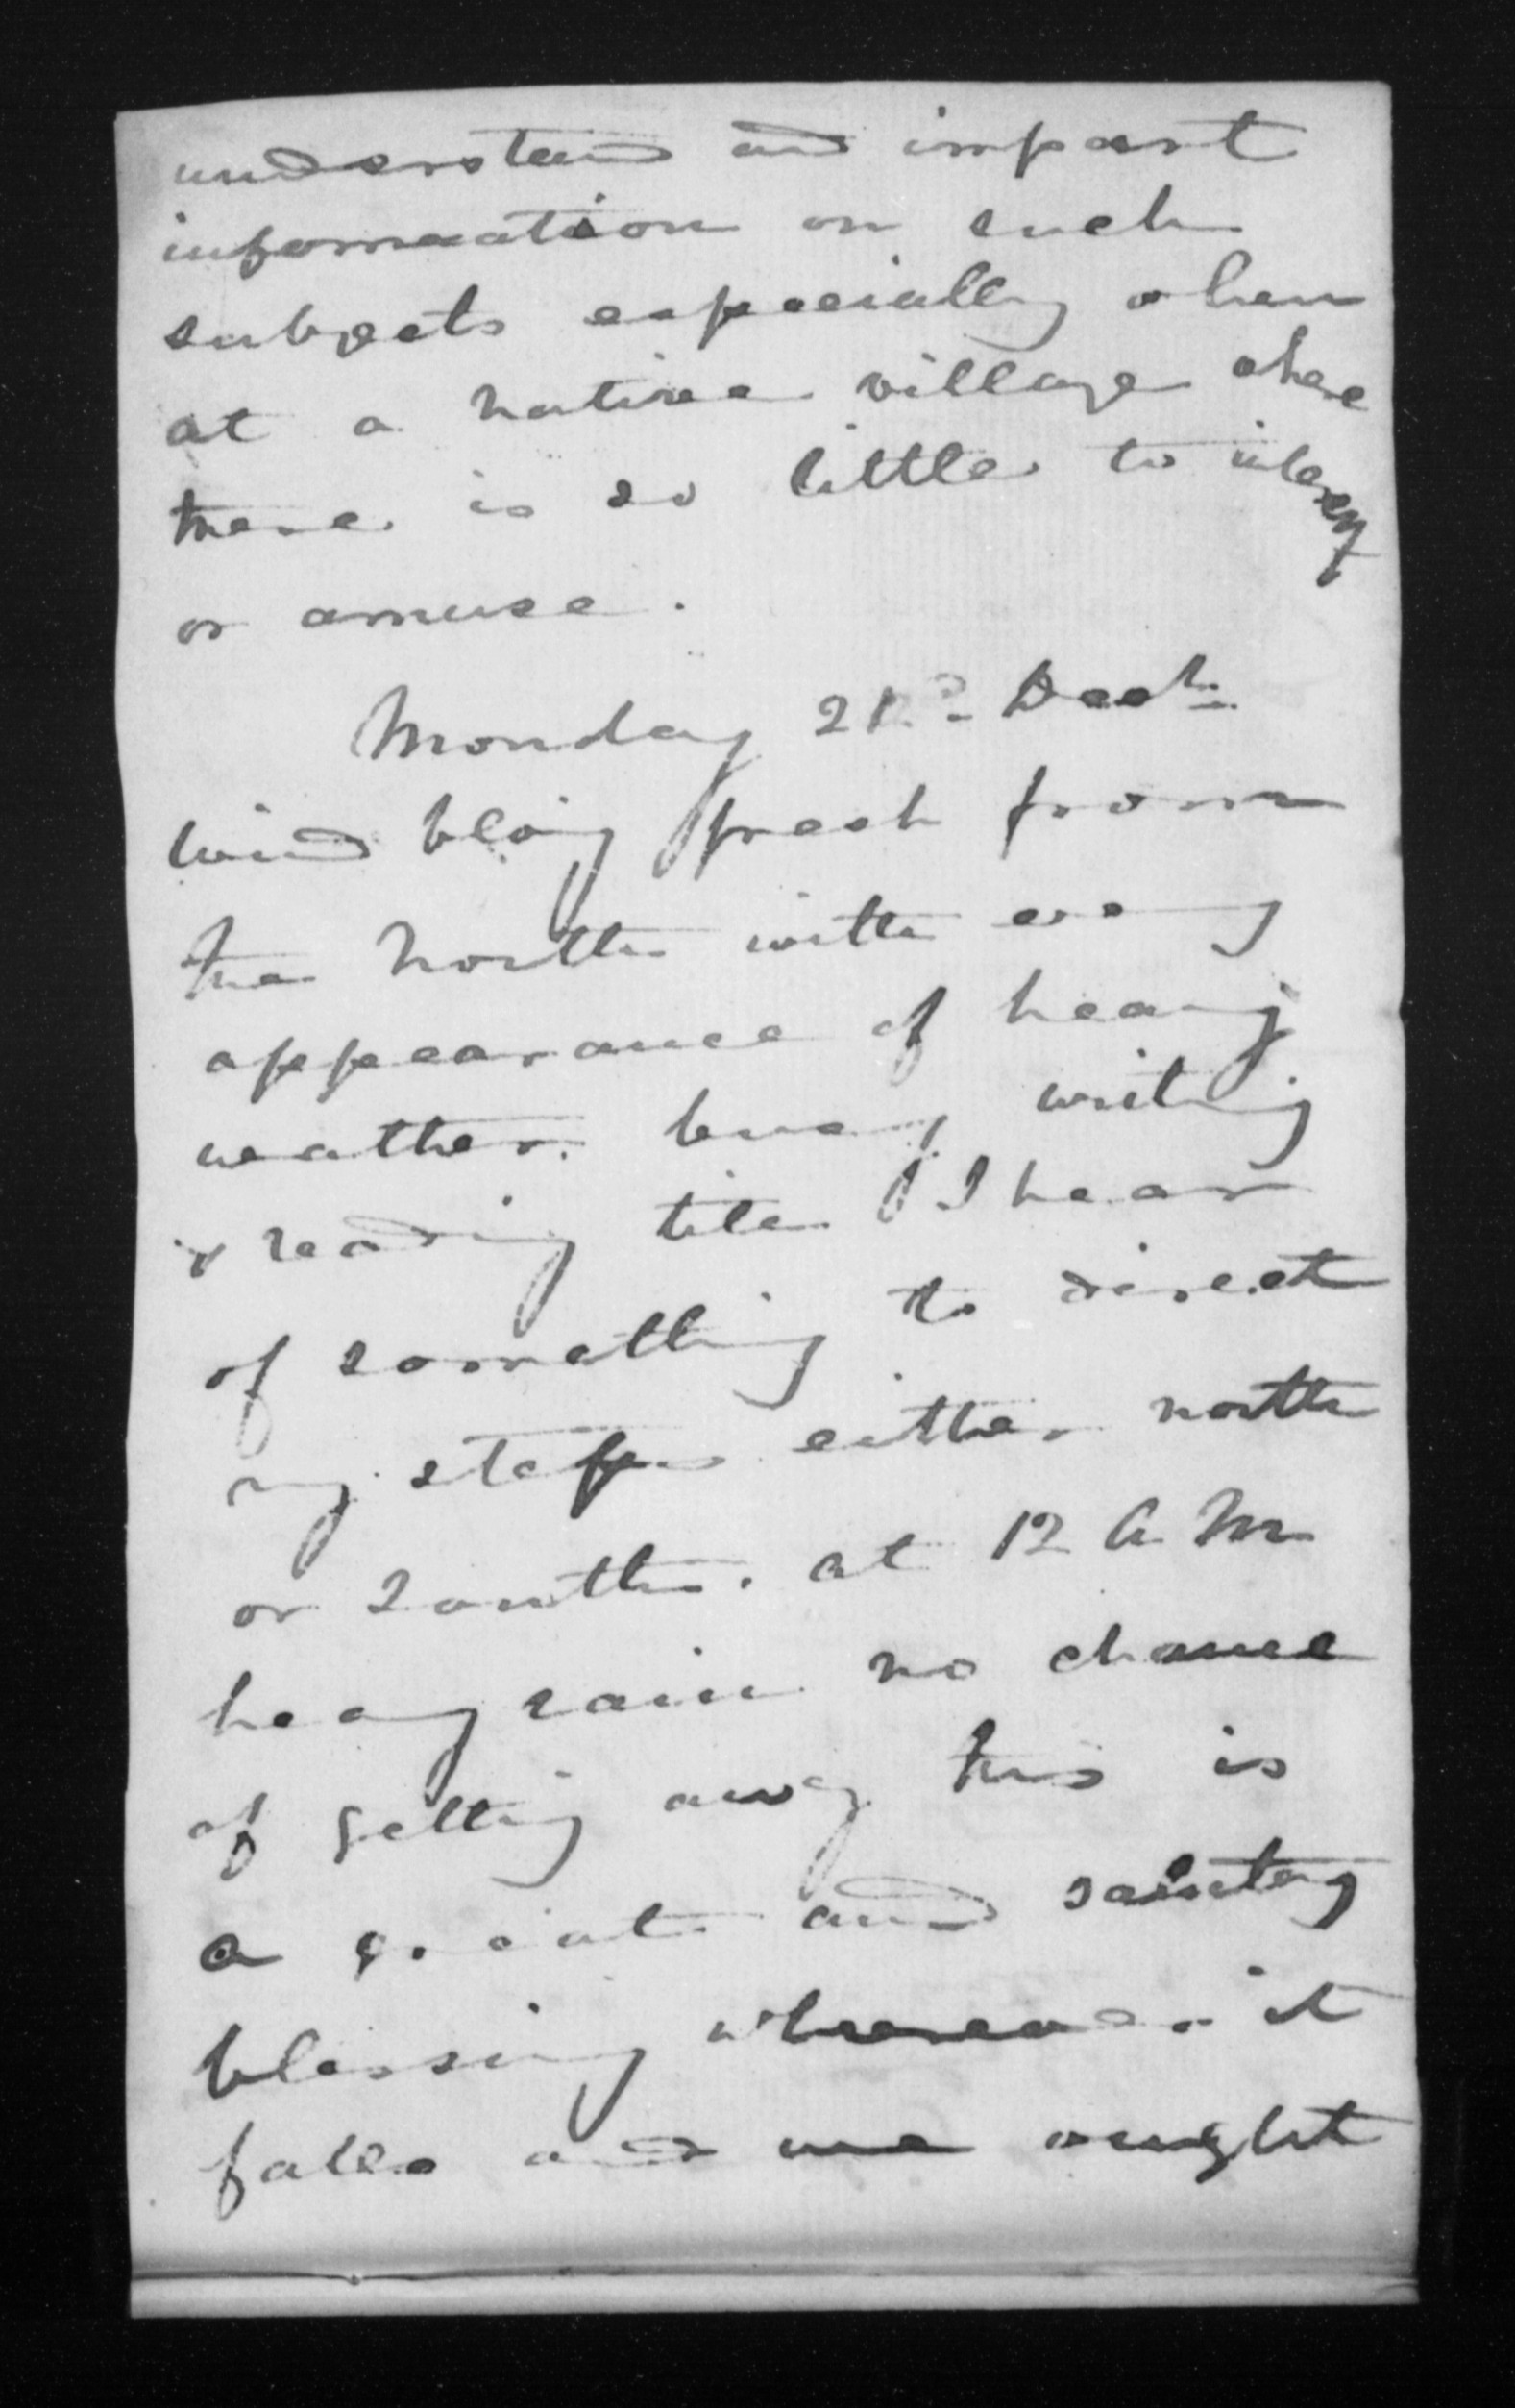 understand and impart
information on such
subjects especially when
at a native village where
there is so little to interest
or amuse.
Monday 21st Decr
wind bloig fresh from
the North with every
appearance of heavy
weather. busy writing
& reading till I hear
of something to direct
my steps either north
or South. at 12 A M
heavy rain no chance
of getting away this is
a great and salutary
blessing whenever it
falls and we ought